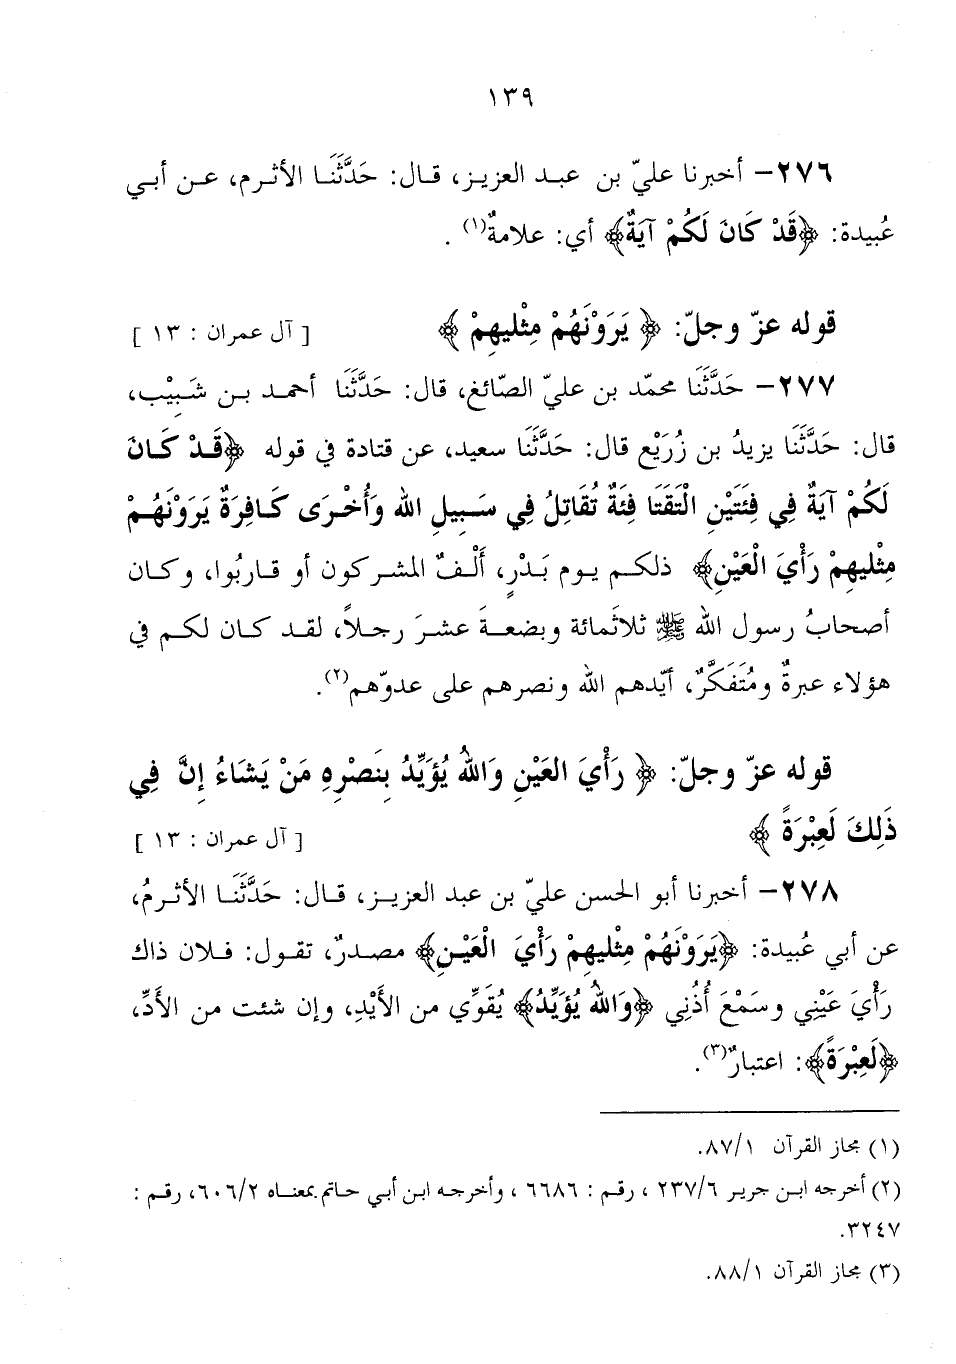 ١٣٩
٢٧٦- أخبرنا عليّ بن عبد العزيز، قال: حَدَّثَنَا الأثرم، عن أبي
عُبيدة: ﴿قَدْ كَانَ لَكُمْ آيَةٌ﴾ أي: علامةٌ(١) .
قوله عزّ وجلّ: ﴿ يَرَوْنَهُمْ مِثْلَيهِمْ ﴾ [ آل عمران : ١٣ ]
٢٧٧- حَدَّثَنَا محمّد بن عليّ الصّائغ، قال: حَدَّثَنَا أحمد بن شَبِيْب،
قال: حَدَّثَنَا يزيدُ بن زُرَيْع قال: حَدَّثَنَا سعيد، عن قتادة في قوله ﴿قَدْ كَانَ
لَكُمْ آيَةٌ فِي فِئَتَيْنِ الْتَقَتَا فِئَةٌ تُقَاتِلُ فِي سَبِيلِ الله وَأُخْرَى كَافِرَةٌ يَرَوْنَهُمْ
مِثْلَيهِمْ رَأْيَ الْعَيْنِ﴾ ذلكم يوم بَدْرٍ، أَلْفٌ المشركون أو قاربُوا، وكان
أصحابُ رسول الله ﷺ ثلاثمائة وبضعةَ عشرَ رجلاً، لقد كان لكم في
هؤلاء عبرةٌ ومُتَفَكَّرٌ، أيّدهم الله ونصرهم على عدوّهم(٢).
قوله عزّ وجلّ: ﴿ رَأْيَ العَيْنِ وَاللهُ يُؤَيِّدُ بِنَصْرِهِ مَنْ يَشَاءُ إِنَّ فِي
ذَلِكَ لَعِبْرَةً ﴾ [ آل عمران : ١٣ ]
٢٧٨- أخبرنا أبو الحسن عليّ بن عبد العزيز، قال: حَدَّثَنَا الأثرمُ،
عن أبي عُبيدة: ﴿يَرَوْنَهُمْ مِثْلَيهِمْ رَأْيَ الْعَيْنِ﴾ مصدرٌ، تقول: فلان ذاك
رَأْيَ عَيْنِي وسَمْعَ أُذُنِي ﴿وَاللهُ يُؤَيِّدُ﴾ يُقَوِّي من الأَيْدِ، وإن شئت من الأَدِّ،
﴿لَعِبْرَةً﴾: اعتبارٌ(٣).
(١) مجاز القرآن ٨٧/١.
(٢) أخرجه ابن جرير ٢٣٧/٦ ، رقم : ٦٦٨٦ ، وأخرجه ابن أبي حاتم بمعناه ٦٠٦/٢، رقم :
٣٢٤٧.
(٣) مجاز القرآن ٨٨/١.